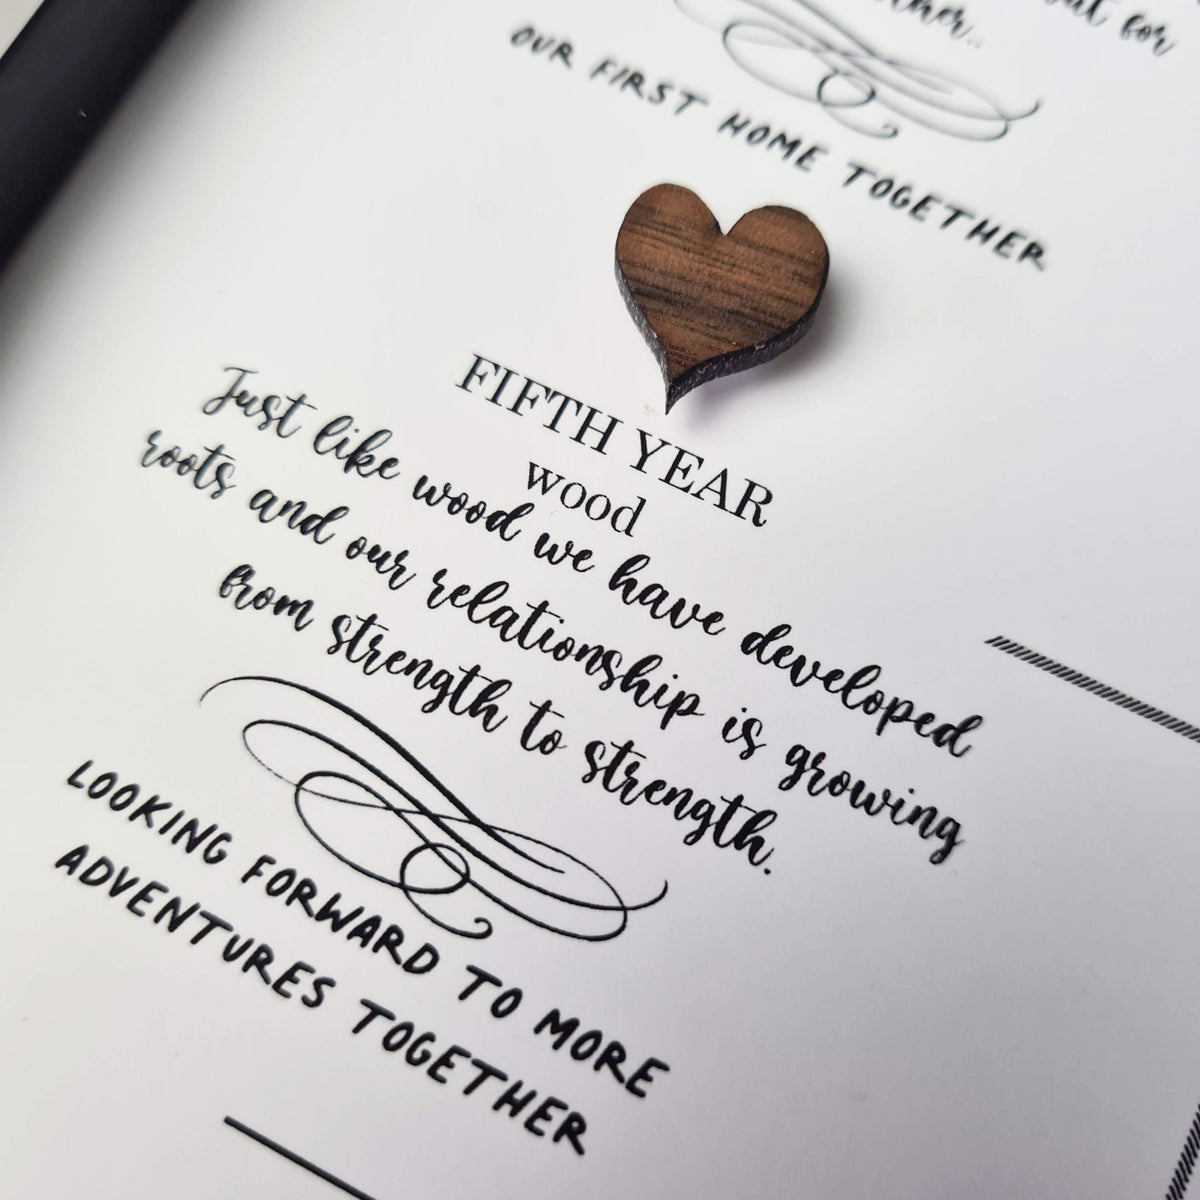 but for
OUR FIRST HOME TOGETHER
FIFTH YEAR
wood
Just like wood we have developed
roots and our relationship is growing
from strength to strength.
LOOKING FORWARD TO MORE
ADVENTURES TOGETHER